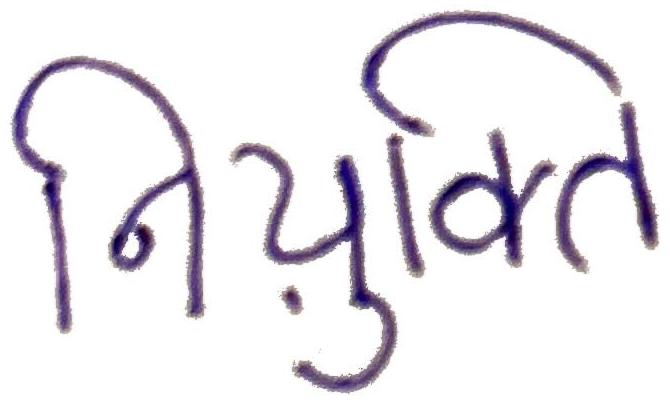 नियुक्ति